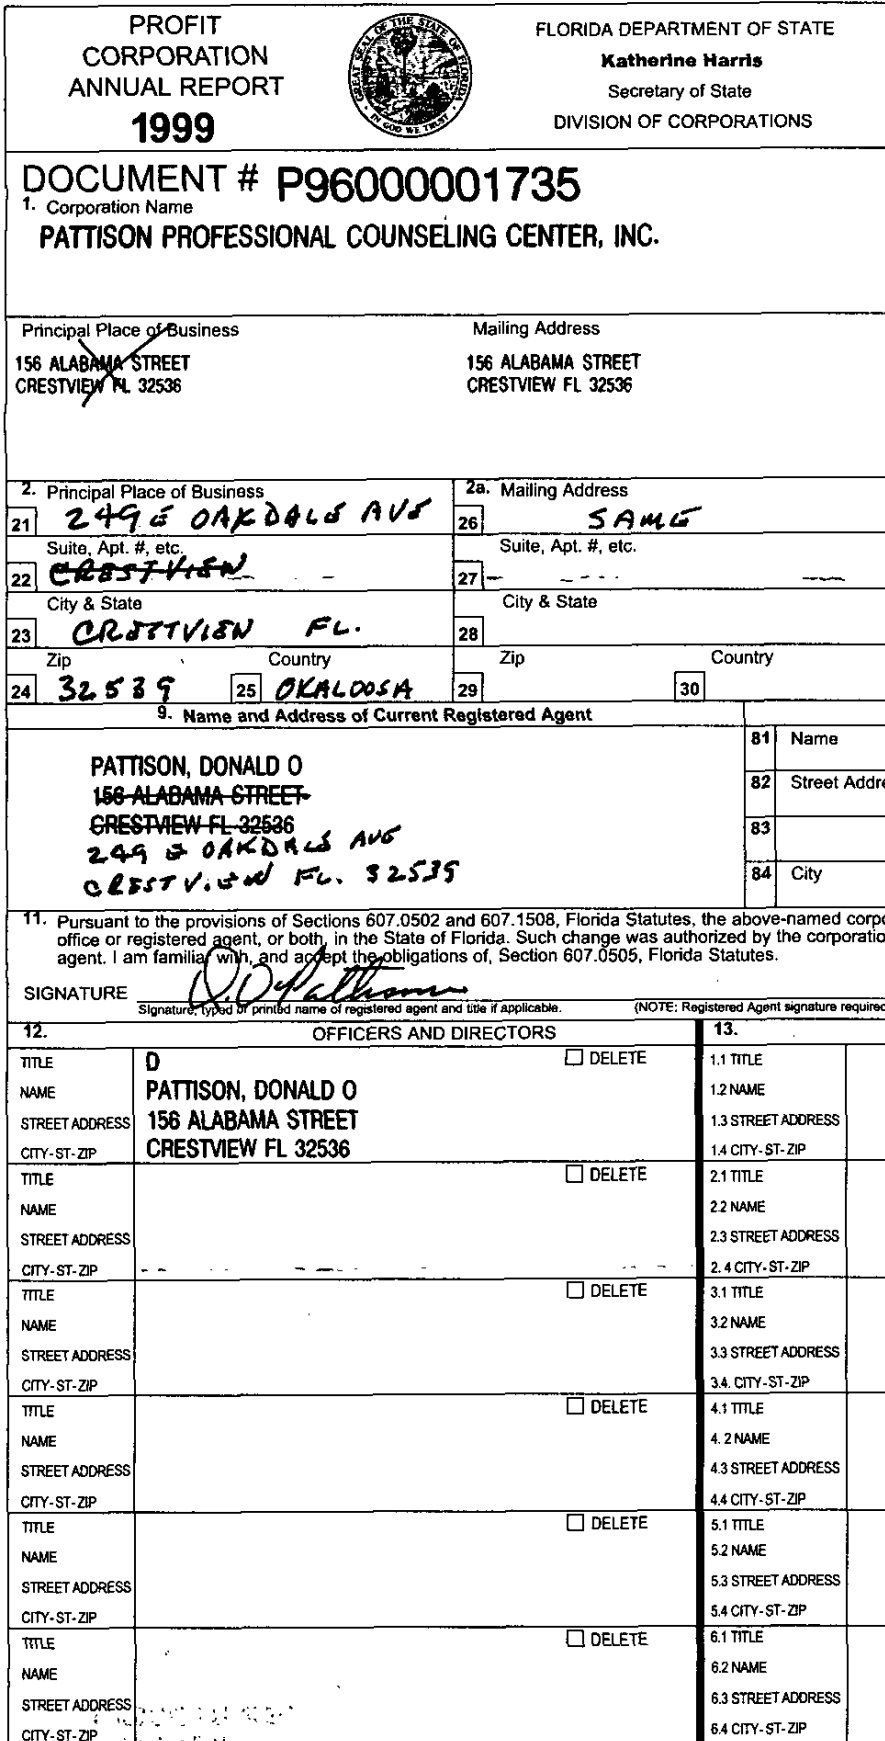 PROFIT
CORPORATION
ANNUAL REPORT
1999
GREAT SEAL OF THE STATE OF FLORIDA
IN GOD WE TRUST
FLORIDA DEPARTMENT OF STATE
Katherine Harris
Secretary of State
DIVISION OF CORPORATIONS
DOCUMENT # P96000001735
1. Corporation Name
PATTISON PROFESSIONAL COUNSELING CENTER, INC.
Principal Place of Business
156 ALABAMA STREET
CRESTVIEW FL 32536
Mailing Address
156 ALABAMA STREET
CRESTVIEW FL 32536
2. Principal Place of Business
21 249 E OAKDALE AVE
2a. Mailing Address
26 SAME
Suite, Apt. #, etc.
22 CRESTVIEW
Suite, Apt. #, etc.
27
City & State
23 CRESTVIEW FL.
City & State
28
Zip
24 32539
Country
25 OKALOOSA
Zip
29
Country
30
9. Name and Address of Current Registered Agent
PATTISON, DONALD O
156 ALABAMA STREET
CRESTVIEW FL 32536
249 E OAKDALE AVE
CRESTVIEW FL. 32539
81 Name
82 Street Addre
83
84 City
11. Pursuant to the provisions of Sections 607.0502 and 607.1508, Florida Statutes, the above-named corpo
office or registered agent, or both, in the State of Florida. Such change was authorized by the corporatio
agent. I am familiar with, and accept the obligations of, Section 607.0505, Florida Statutes.
SIGNATURE D. O. Pattison
Signature, typed or printed name of registered agent and title if applicable.
(NOTE: Registered Agent signature required
12. OFFICERS AND DIRECTORS
13.
TITLE D DELETE
NAME PATTISON, DONALD O
STREET ADDRESS 156 ALABAMA STREET
CITY-ST-ZIP CRESTVIEW FL 32536
1.1 TITLE
1.2 NAME
1.3 STREET ADDRESS
1.4 CITY-ST-ZIP
TITLE DELETE
NAME
STREET ADDRESS
CITY-ST-ZIP
2.1 TITLE
2.2 NAME
2.3 STREET ADDRESS
2.4 CITY-ST-ZIP
TITLE DELETE
NAME
STREET ADDRESS
CITY-ST-ZIP
3.1 TITLE
3.2 NAME
3.3 STREET ADDRESS
3.4. CITY-ST-ZIP
TITLE DELETE
NAME
STREET ADDRESS
CITY-ST-ZIP
4.1 TITLE
4.2 NAME
4.3 STREET ADDRESS
4.4 CITY-ST-ZIP
TITLE DELETE
NAME
STREET ADDRESS
CITY-ST-ZIP
5.1 TITLE
5.2 NAME
5.3 STREET ADDRESS
5.4 CITY-ST-ZIP
TITLE DELETE
NAME
STREET ADDRESS
CITY-ST-ZIP
6.1 TITLE
6.2 NAME
6.3 STREET ADDRESS
6.4 CITY-ST-ZIP